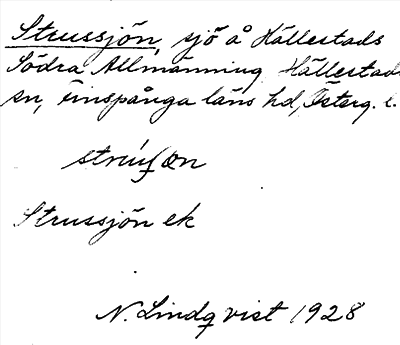 Strussjön, sjö å Hällestads
Södra Allmänning, Hällestads
sn, Finspånga läns hd, Österg. l.
Strussjön ek
N. Lindqvist 1928